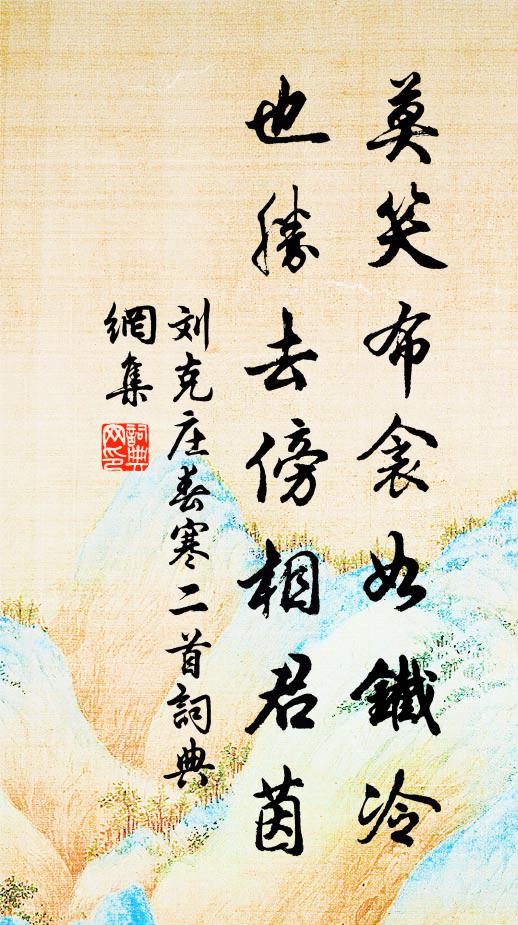 莫笑布衾如鐵冷
也勝去傍相君茵
刘克庄春寒二首詞典
網集
詞典網印